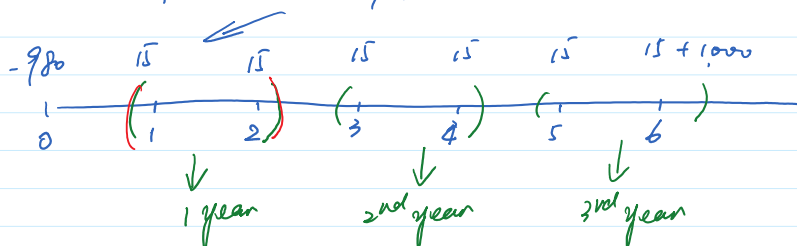 -980 15 15 15 15 15 15 + 1,000
0 1 2 3 4 5 6
1 year 2nd year 3rd year